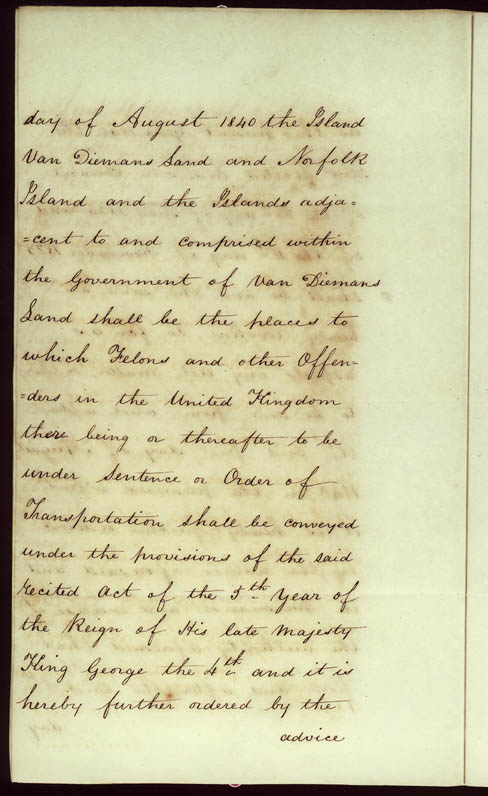 day of August, 1840 the Island
Van Diemans Land and Norfolk
Island and the Islands adja=
=cent to and comprised within
the Government of Van Diemans
Land shall be the places to
which Felons and other Offen=
=ders in the United Kingdom
then being or thereafter to be
under Sentence or Order of
Transportation shall be conveyed
under the provisions of the said
recited Act of the 5th Year of
the Reign of His late Majesty
King George the 4th and it is
hereby further ordered by the
advice